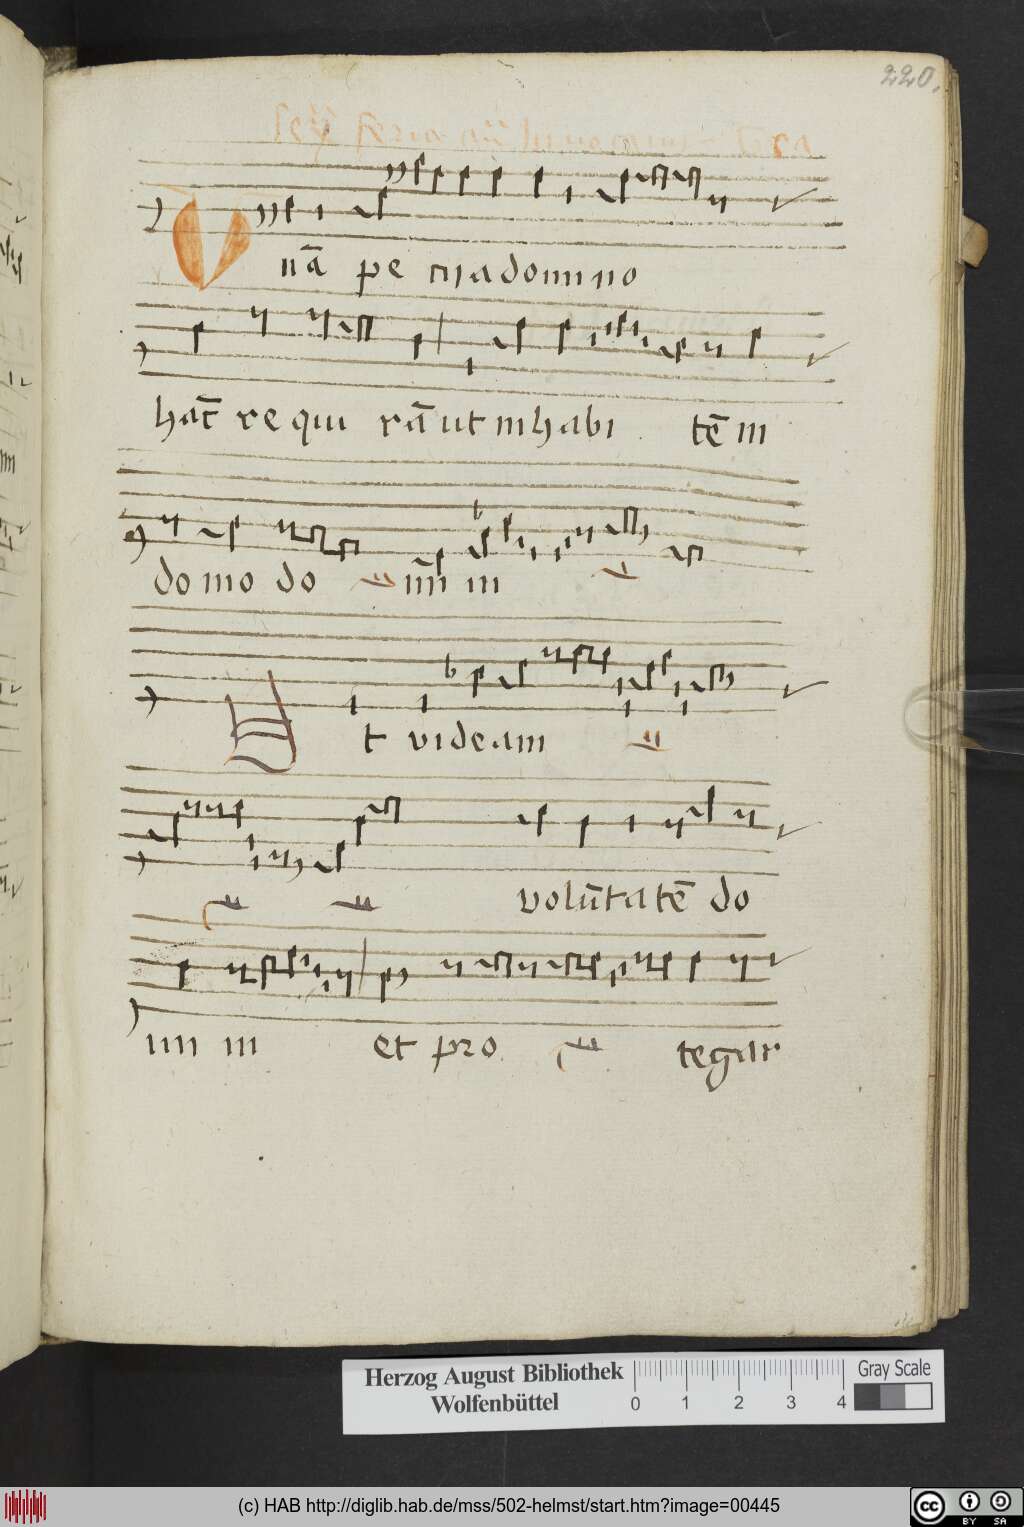 220.
Unā pe cijadomino
hac̄ requi rāut inhabi tē in
domo do mi ni
Et videam
volūtatē do
mi ni et pro tegar
Herzog August Bibliothek
Wolfenbüttel
0 1 2 3 4
Gray Scale
(c) HAB http://diglib.hab.de/mss/502-helmst/start.htm?image=00445
cc BY SA